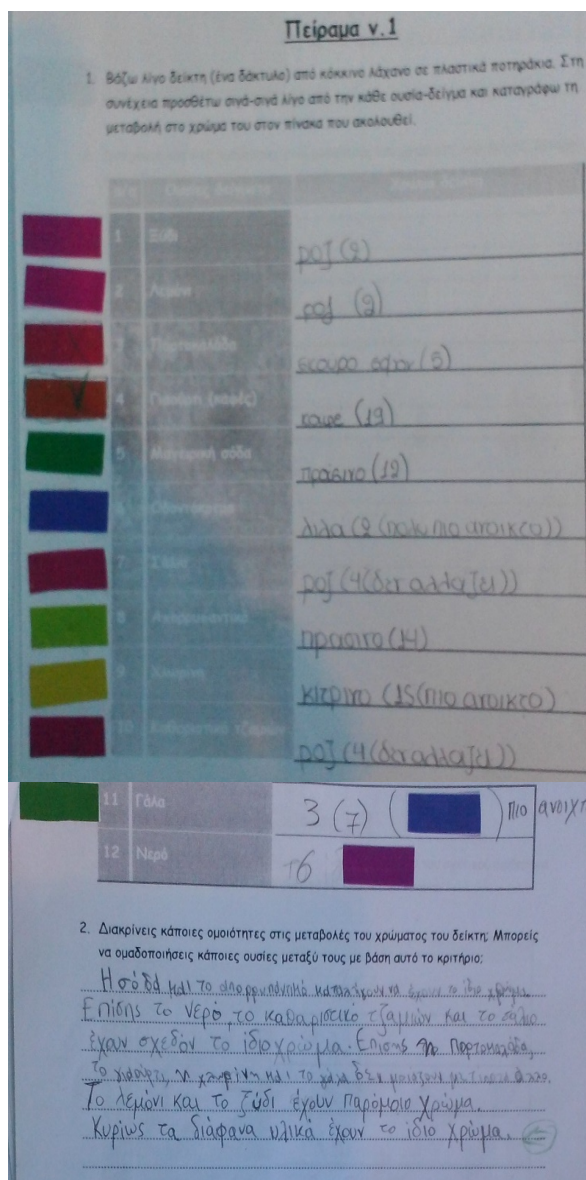 Πείραμα ν.1
1. Βάζω λίγο δείκτη (ένα δάκτυλο) από κόκκινο λάχανο σε πλαστικά ποτηράκια. Στη
συνέχεια προσθέτω σιγά-σιγά λίγο από την κάθε ουσία-δείγμα και καταγράφω τη
μεταβολή στο χρώμα του στον πίνακα που ακολουθεί.
1 Ξύδι ροζ (2)
2 Λεμόνι ροζ (2)
3 Πορτοκαλάδα σκουρο (5)
4 Γιαούρτι (19)
5 Μαγειρική σόδα πράσινο (12)
6 λιλα (2 (πολυ πιο ανοικτο))
7 ροζ (4 (δεν αλλαζει))
8 Απορρυπαντικό πρασινο (14)
9 Χλωρίνη κιτρινο (15 (πιο ανοικτο)
10 Καθαριστικό τζαμιών ροζ (4 (δεν αλλαζει))
11 Γάλα 3 (7) ( ) πιο
12 Νερό 6
2. Διακρίνεις κάποιες ομοιότητες στις μεταβολές του χρώματος του δείκτη; Μπορείς
να ομαδοποιήσεις κάποιες ουσίες μεταξύ τους με βάση αυτό το κριτήριο;
Η σόδα και το απορρυπαντικό να έχουν το ίδιο χρώμα.
Επίσης το νερό, το καθαριστικό τζαμιών και το σάλιο
έχουν σχεδόν το ίδιο χρώμα. Επισης η πορτοκαλάδα,
το γιαούρτι, η χλωρίνη και το γάλα δεν μοιάζουν με τίποτα άλλο.
Το λεμόνι και το ξύδι έχουν παρόμοιο χρώμα.
Κυρίως τα διάφανα υλικά έχουν το ίδιο χρώμα.